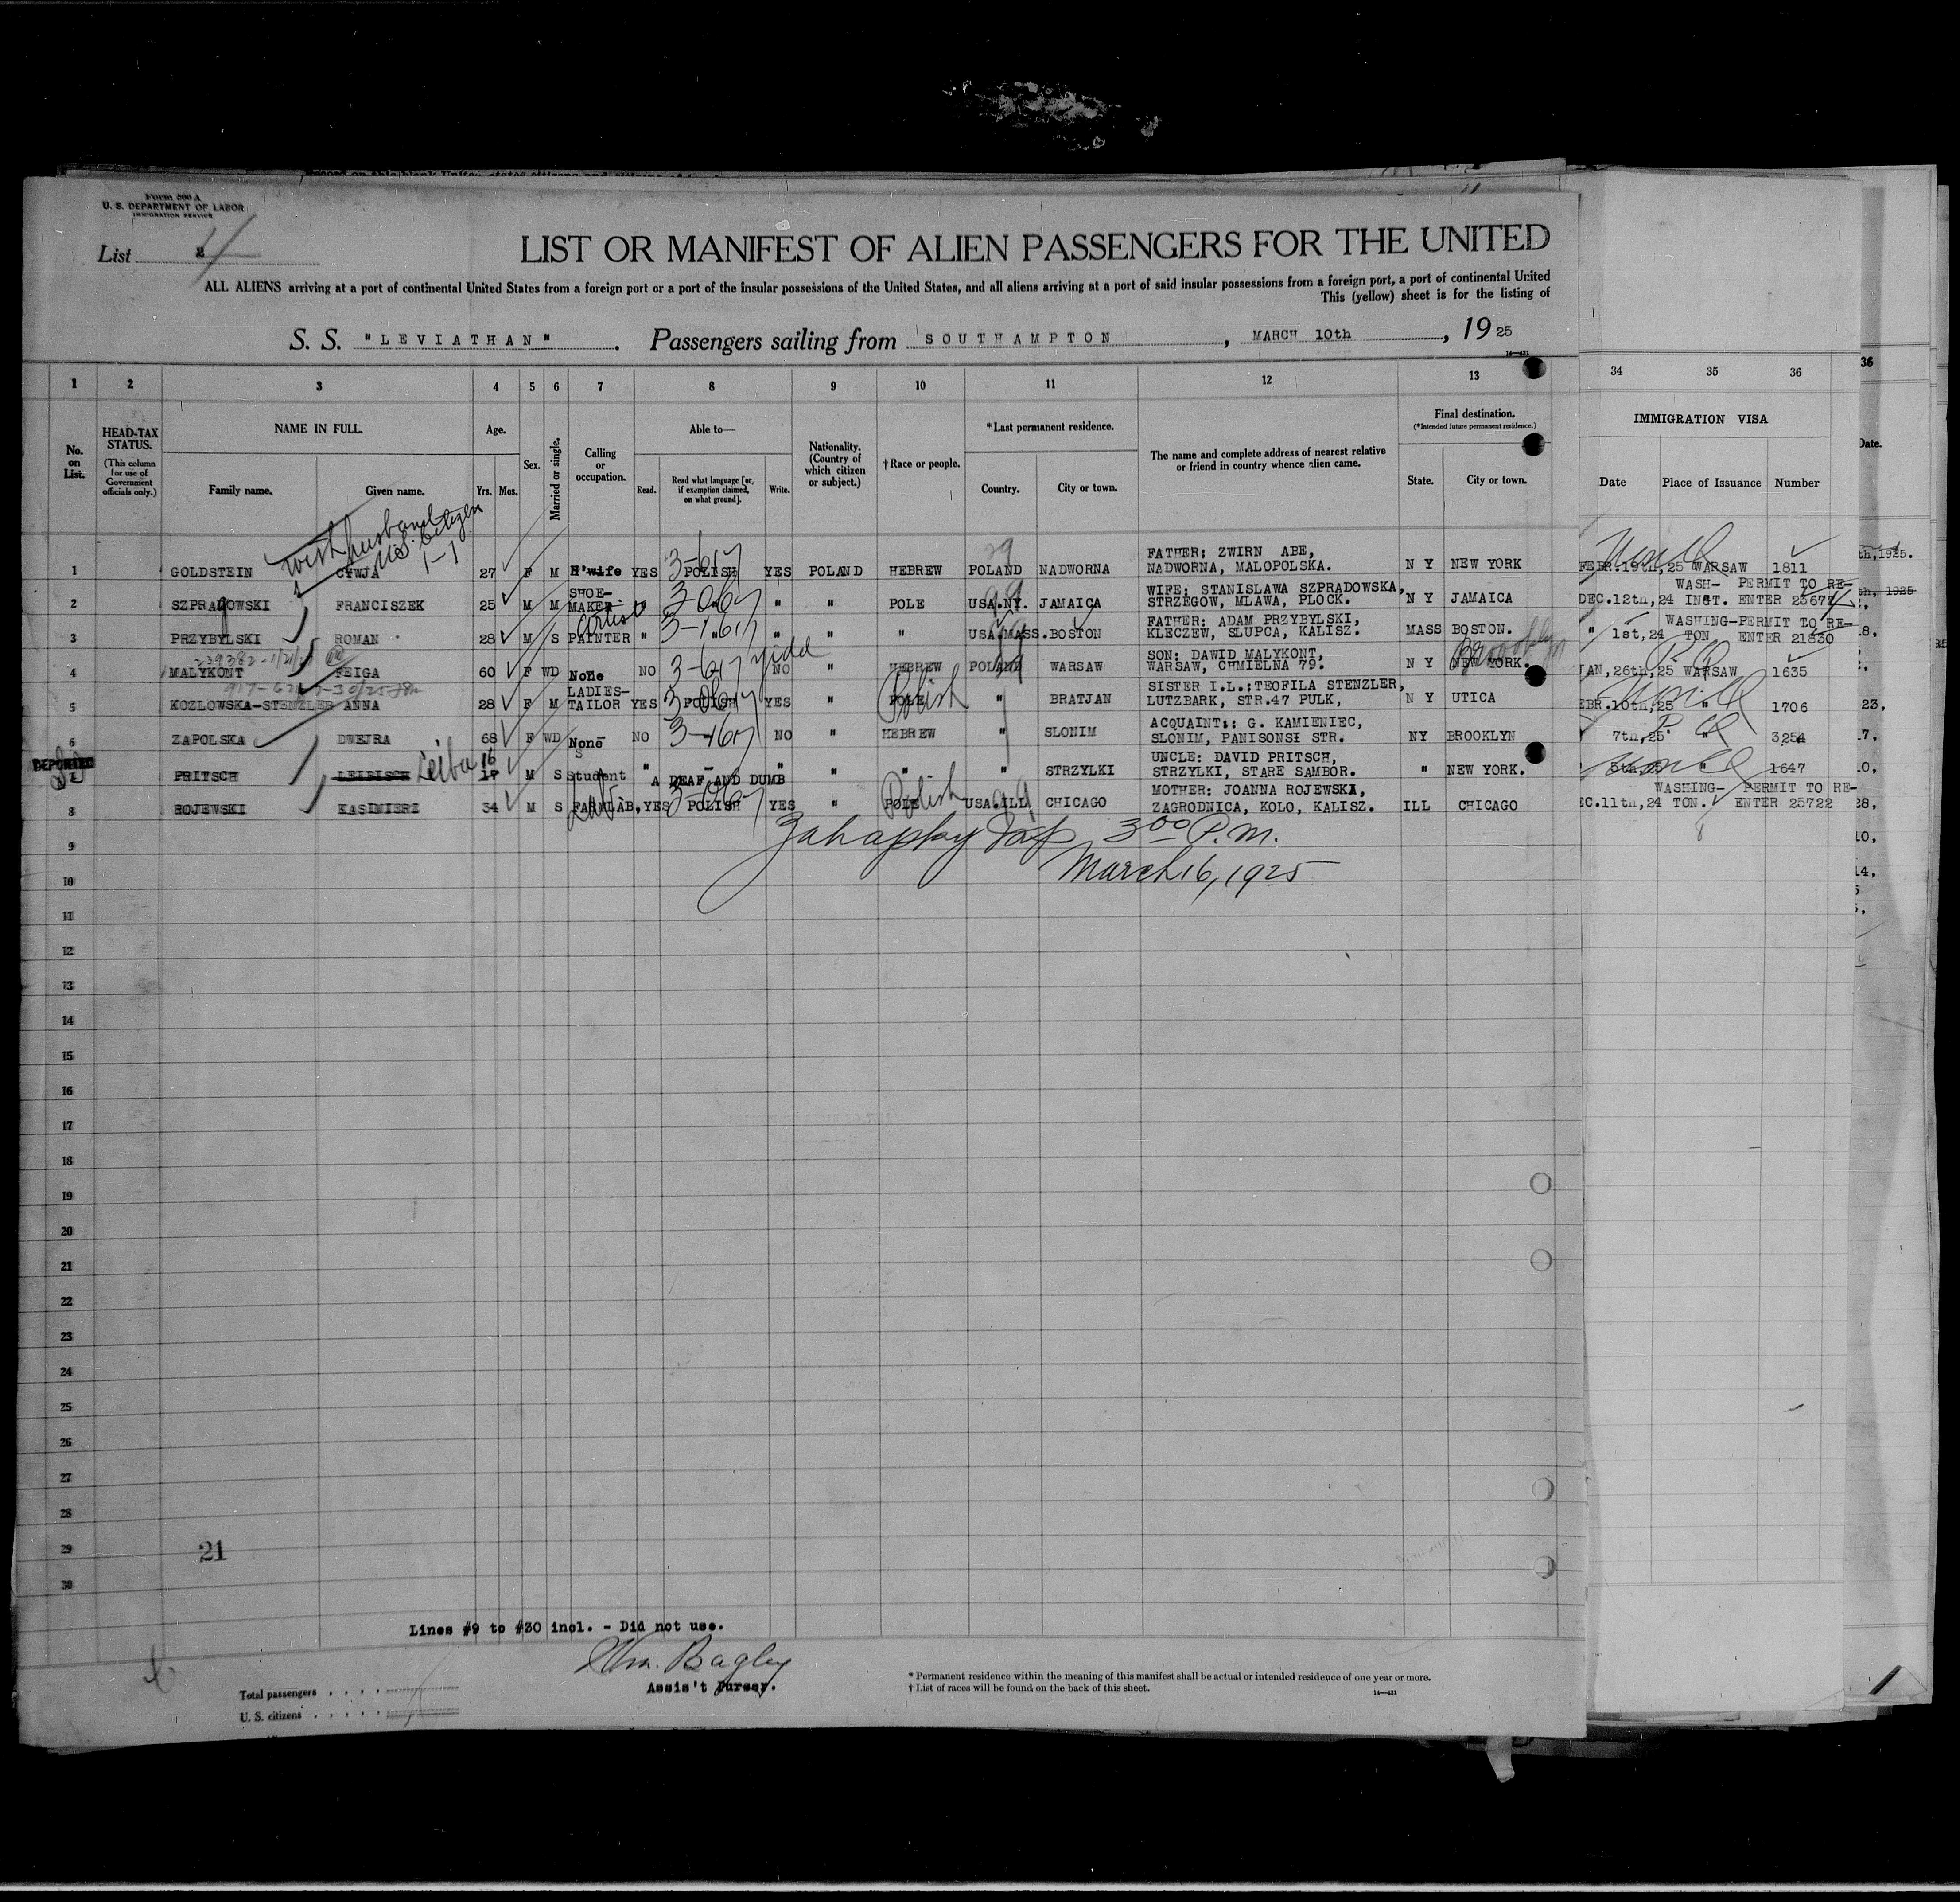 Form 500 A
U. S. DEPARTMENT OF LABOR
IMMIGRATION SERVICE
List 4
LIST OR MANIFEST OF ALIEN PASSENGERS FOR THE UNITED
ALL ALIENS arriving at a port of continental United States from a foreign port or a port of the insular possessions of the United States, and all aliens arriving at a port of said insular possessions from a foreign port, a port of continental United
This (yellow) sheet is for the listing of
S. S. "LEVIATHAN". Passengers sailing from SOUTHAMPTON, MARCH 10th, 1925
1 2 3 4 5 6 7 8 9 10 11 12 13 34 35 36 36
No. on List.
HEAD-TAX STATUS.
(This column for use of Government officials only.)
NAME IN FULL.
Family name. Given name.
Age.
Yrs. Mos.
Sex.
Married or single.
Calling or occupation.
Able to—
Read. Read what language [or, if exemption claimed, on what ground]. Write.
Nationality. (Country of which citizen or subject.)
†Race or people.
*Last permanent residence.
Country. City or town.
The name and complete address of nearest relative or friend in country whence alien came.
Final destination.
(*Intended future permanent residence.)
State. City or town.
IMMIGRATION VISA
Date Place of Issuance Number
Date.
with husband
U.S. Citizen
1-1
1 GOLDSTEIN CYWJA 27 F M H'wife YES POLISH YES POLAND HEBREW POLAND NADWORNA FATHER: ZWIRN ABE, NADWORNA, MALOPOLSKA. N Y NEW YORK FEBR.19th,25 WARSAW 1811
2 SZPRADOWSKI FRANCISZEK 25 M M SHOE-MAKER. " " " " POLE USA.NY. JAMAICA WIFE: STANISLAWA SZPRADOWSKA, STRZEGOW, MLAWA, PLOCK. N Y JAMAICA DEC.12th,24 WASH-INGT. PERMIT TO RE-ENTER 23672
3 PRZYBYLSKI ROMAN 28 M S artist PAINTER " " " " " USA.MASS. BOSTON FATHER: ADAM PRZYBYLSKI, KLECZEW, SLUPCA, KALISZ. MASS BOSTON. " 1st,24 WASHING-TON PERMIT TO RE-ENTER 21830
4 MALYKONT FEIGA 60 F WD None NO yidd NO " HEBREW POLAND WARSAW SON: DAWID MALYKONT, WARSAW, CHMIELNA 79. N Y NEW YORK. Brooklyn JAN,26th,25 WARSAW 1635
5 KOZLOWSKA-STENZLER ANNA 28 F M LADIES-TAILOR YES POLISH YES " POLE Polish " BRATJAN SISTER I.L.:TEOFILA STENZLER, LUTZBARK, STR.47 PULK, N Y UTICA EBR.10th,25 " 1706
6 ZAPOLSKA DWEJRA 68 F WD None NO — NO " HEBREW " SLONIM ACQUAINT.: G. KAMIENIEC, SLONIM, PANISONSI STR. NY BROOKLYN 7th,25 " 3254
DEPORTED
7 PRITSCH LEIBISCH Leiba 16 17 M S Student " A DEAF AND DUMB " " " " STRZYLKI UNCLE: DAVID PRITSCH, STRZYLKI, STARE SAMBOR. " NEW YORK. 5th,25 " 1647
8 ROJEWSKI KASIMIERZ 34 M S FARMLAB. YES POLISH YES " POLE Polish USA.ILL CHICAGO MOTHER: JOANNA ROJEWSKA, ZAGRODNICA, KOLO, KALISZ. ILL CHICAGO EC.11th,24 WASHING-TON. PERMIT TO RE-ENTER 25722
9 3 00 P.M.
10 March 16, 1925
11
12
13
14
15
16
17
18
19
20
21
22
23
24
25
26
27
28
29 21
30
Lines #9 to #30 incl. - Did not use.
Wm. Bagley
Assis't Purser.
Total passengers . . . .
U. S. citizens . . . . .
* Permanent residence within the meaning of this manifest shall be actual or intended residence of one year or more.
† List of races will be found on the back of this sheet.
14—421